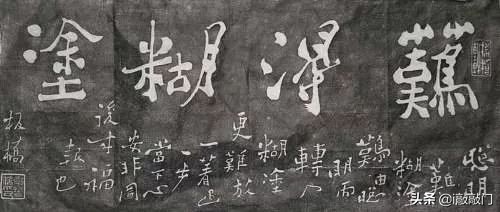 難得糊塗
聰明
難
糊塗
難由聰
明而
轉入
糊塗
更難放
一著退
一步
當下心
安非圖
後來福
報也
板橋
头条